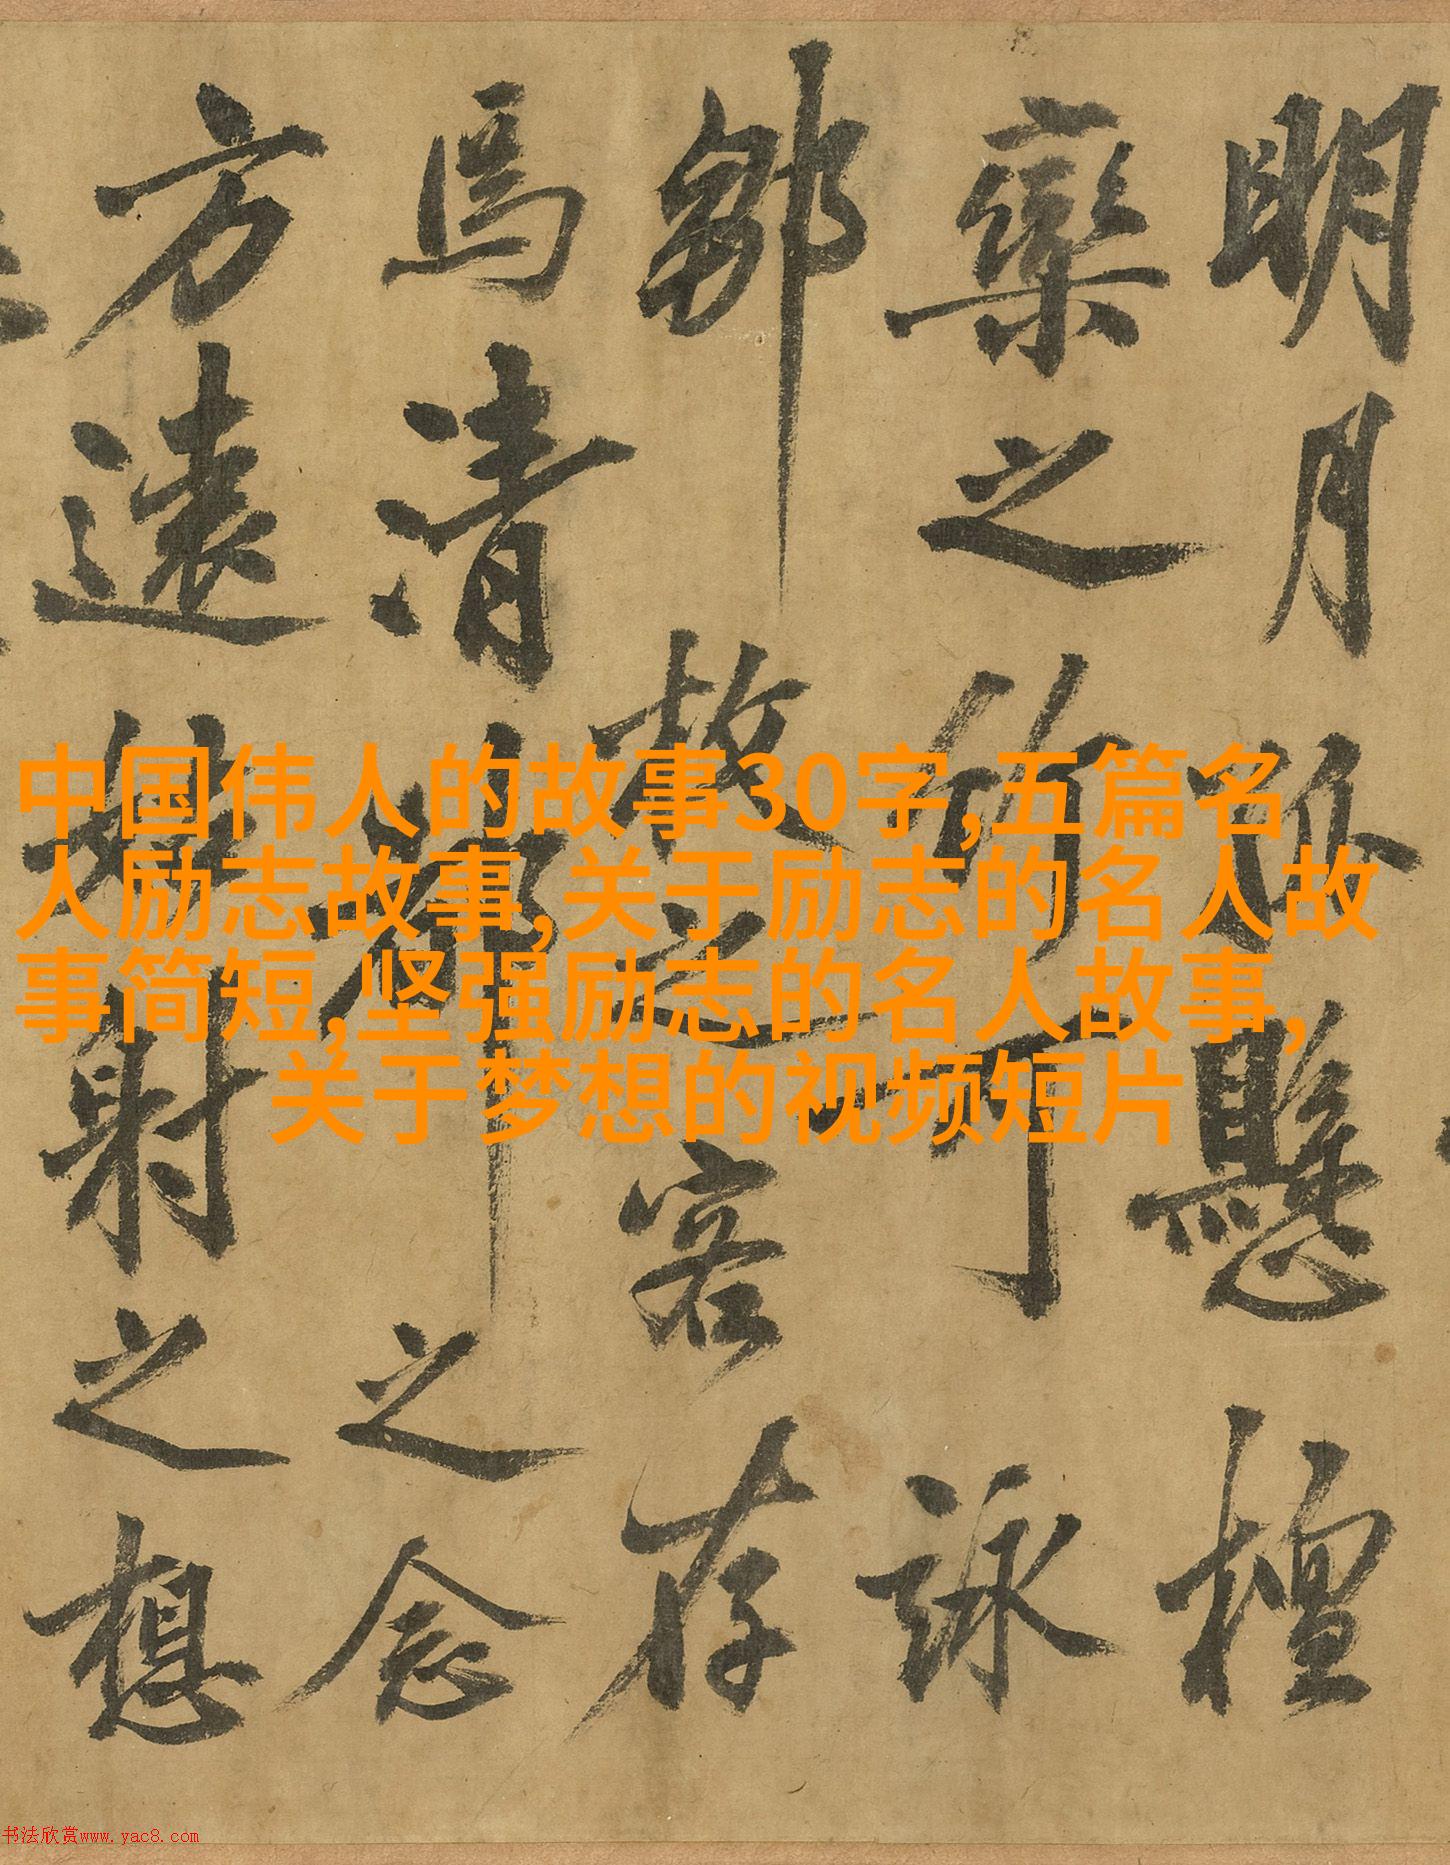 中国伟人的故事30字,五篇名
人励志故事,关于励志的名人故
事简短,坚强励志的名人故事,
关于梦想的视频短片
明月孤懸檀
欒之竹可詠
鄒枚之客存
焉清之念
方遠射之想
书法欣赏www.yac8.com